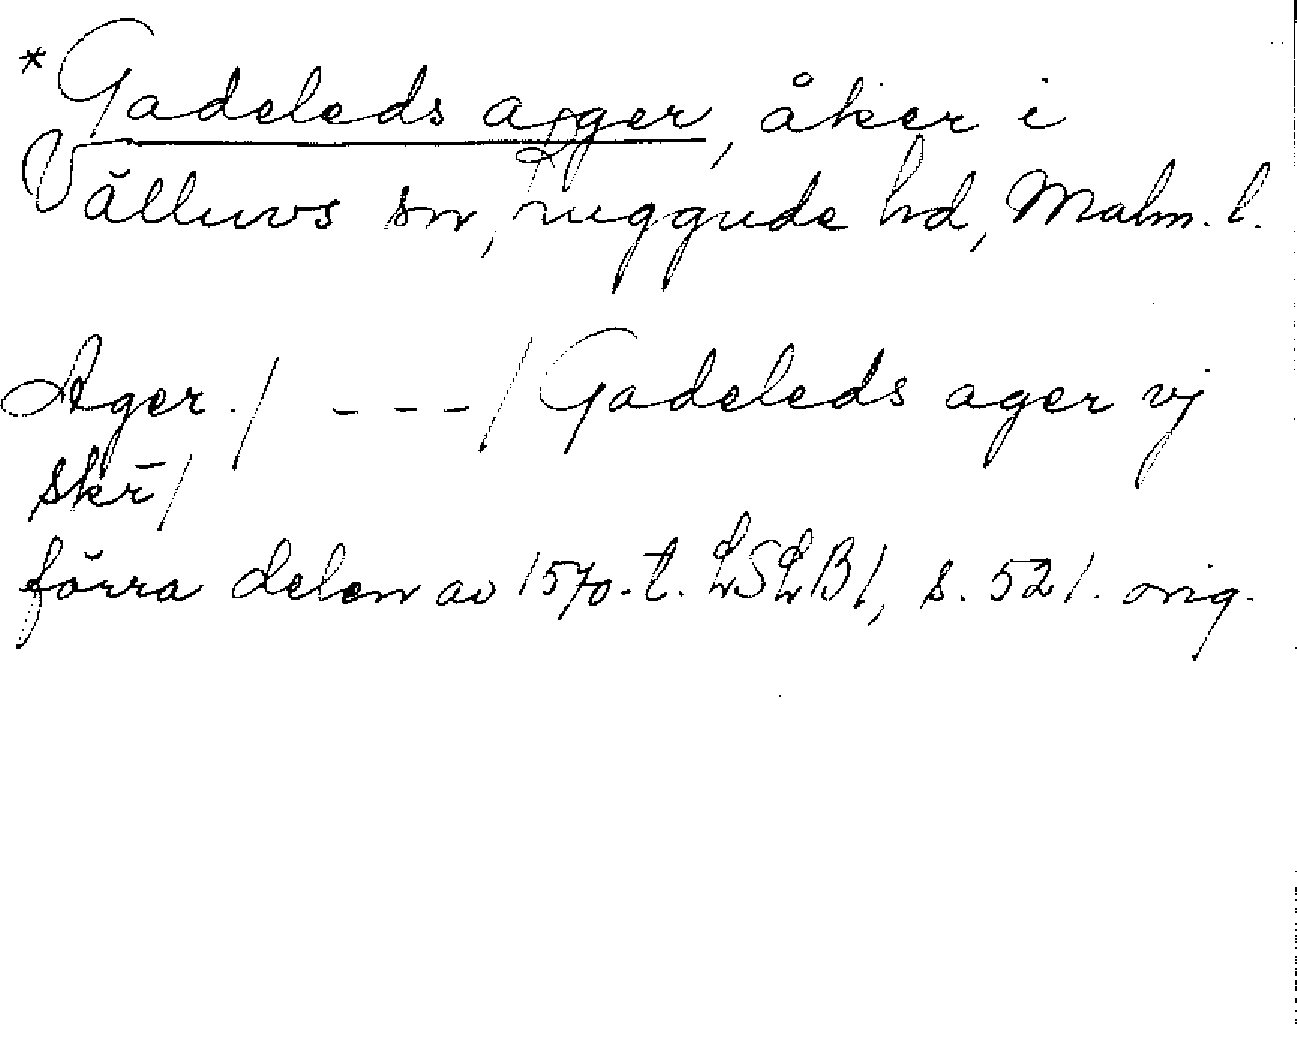 *Gadeleds ager, åker i
Välluvs sn, Luggude hd, Malm. l.
Ager. / - - - / Gadeleds ager vj
skr̄ /
förra delen av 1570-t. LSLB1, s. 521. orig.